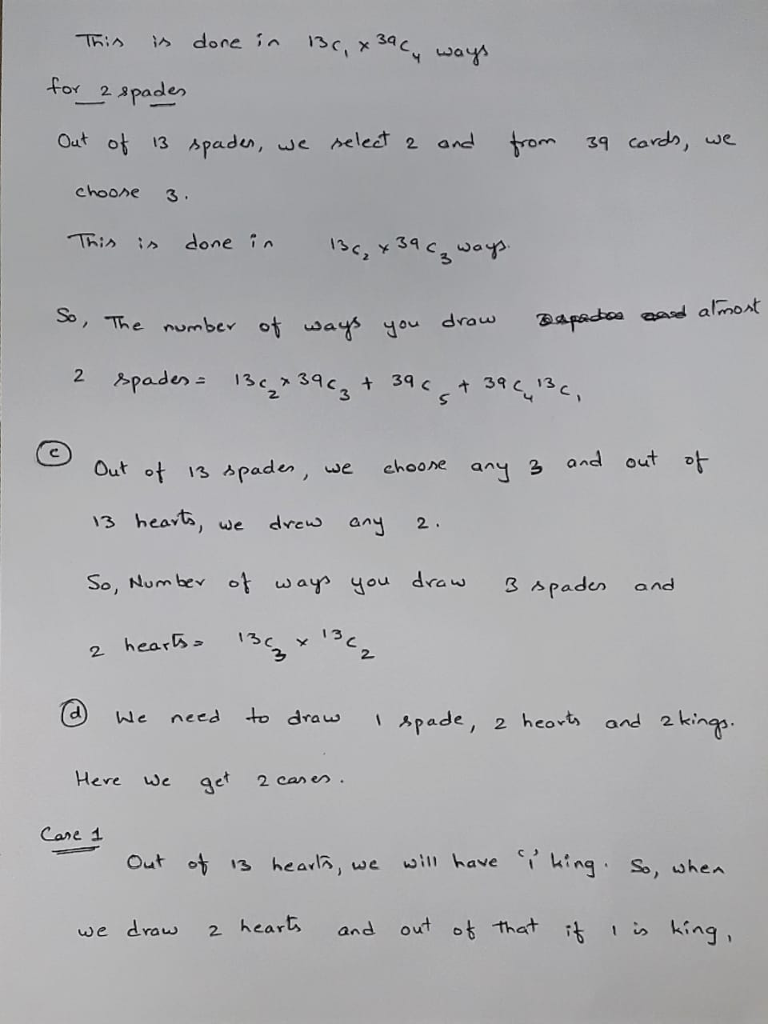 This is done in 13C₁ × 39C₄ ways
for 2 spades
Out of 13 spades, we select 2 and from 39 cards, we
choose 3.
This is done in 13C₂ × 39C₃ ways.
So, The number of ways you draw almost
2 spades = 13C₂ × 39C₃ + 39C₅ + 39C₄ 13C₁
(c) Out of 13 spades, we choose any 3 and out of
13 hearts, we drew any 2.
So, Number of ways you draw 3 spades and
2 hearts = 13C₃ × 13C₂
(d) We need to draw 1 spade, 2 hearts and 2 kings.
Here we get 2 cases.
Case 1
Out of 13 hearts, we will have '1' king. So, when
we draw 2 hearts and out of that if 1 is king,